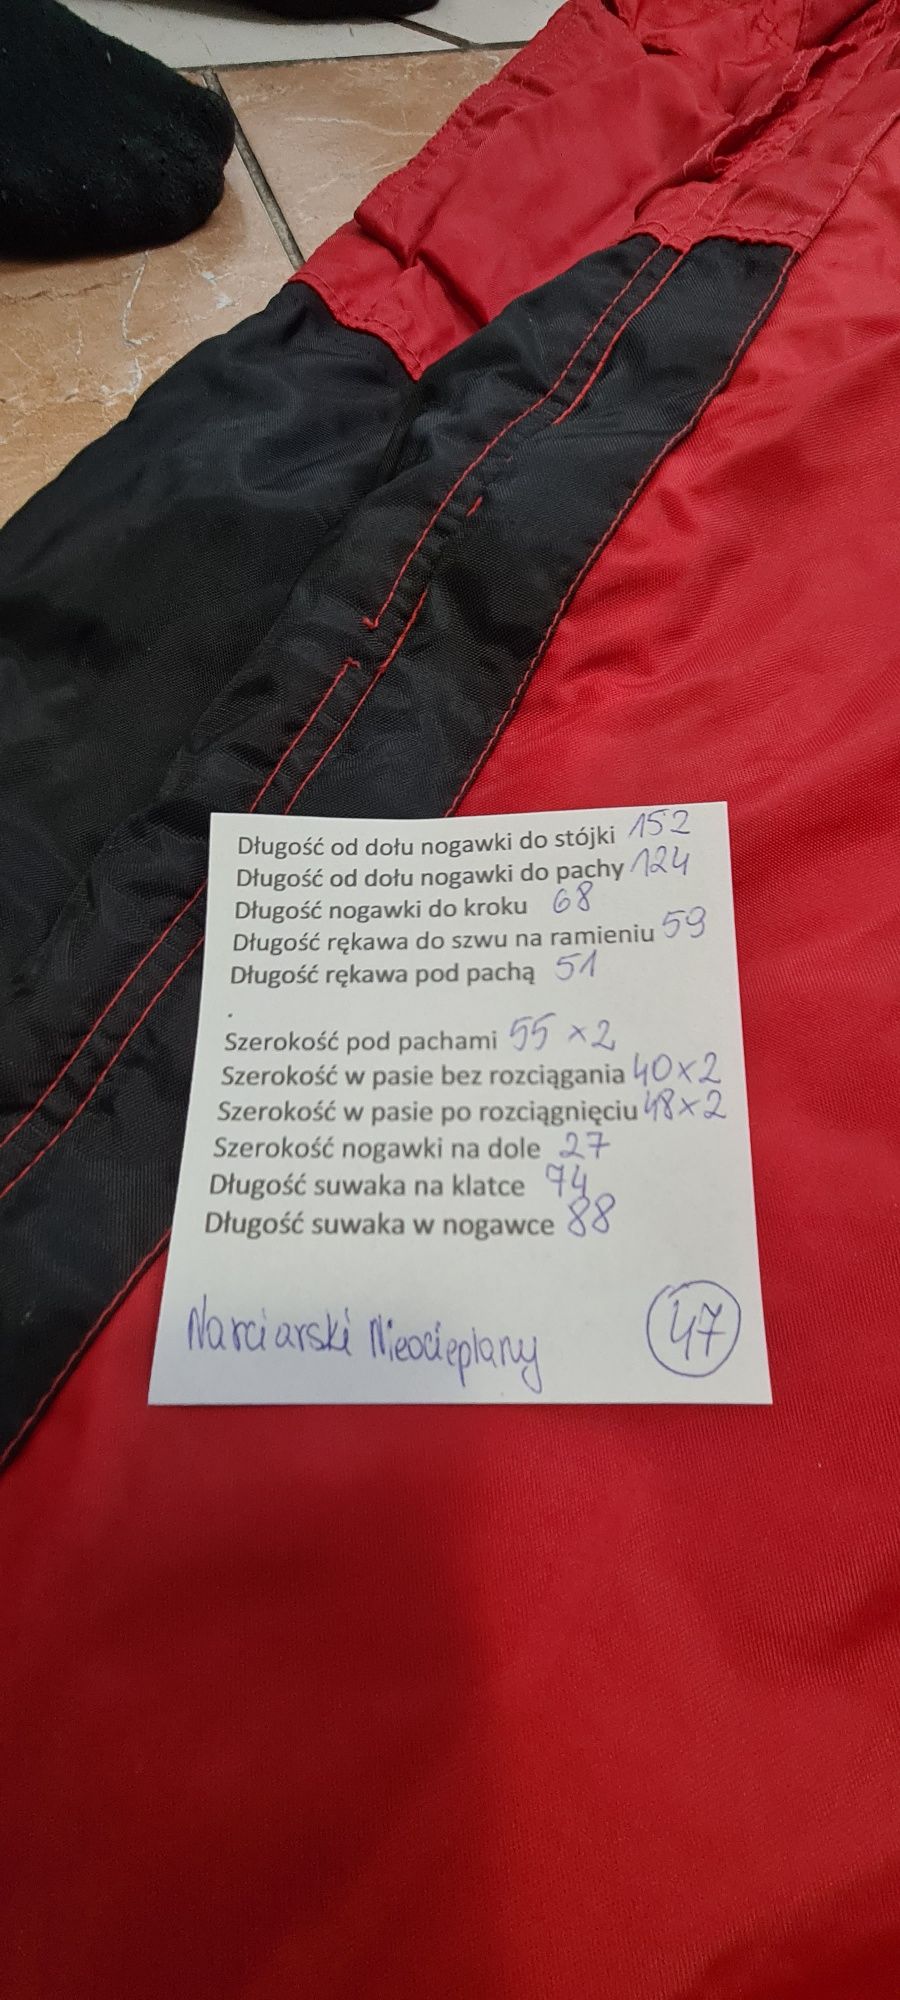 Długość od dołu nogawki do stójki 152
Długość od dołu nogawki do pachy 124
Długość nogawki do kroku 68
Długość rękawa do szwu na ramieniu 59
Długość rękawa pod pachą 51
.
Szerokość pod pachami 55 x 2
Szerokość w pasie bez rozciągania 40 x 2
Szerokość w pasie po rozciągnięciu 48 x 2
Szerokość nogawki na dole 27
Długość suwaka na klatce 74
Długość suwaka w nogawce 88
Narciarski Nieocieplany 47